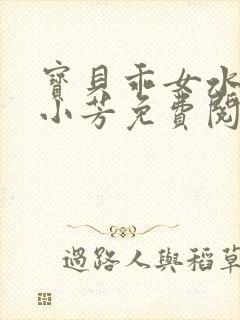 寶貝乖女水
小芳免費閱
過路人與稻草